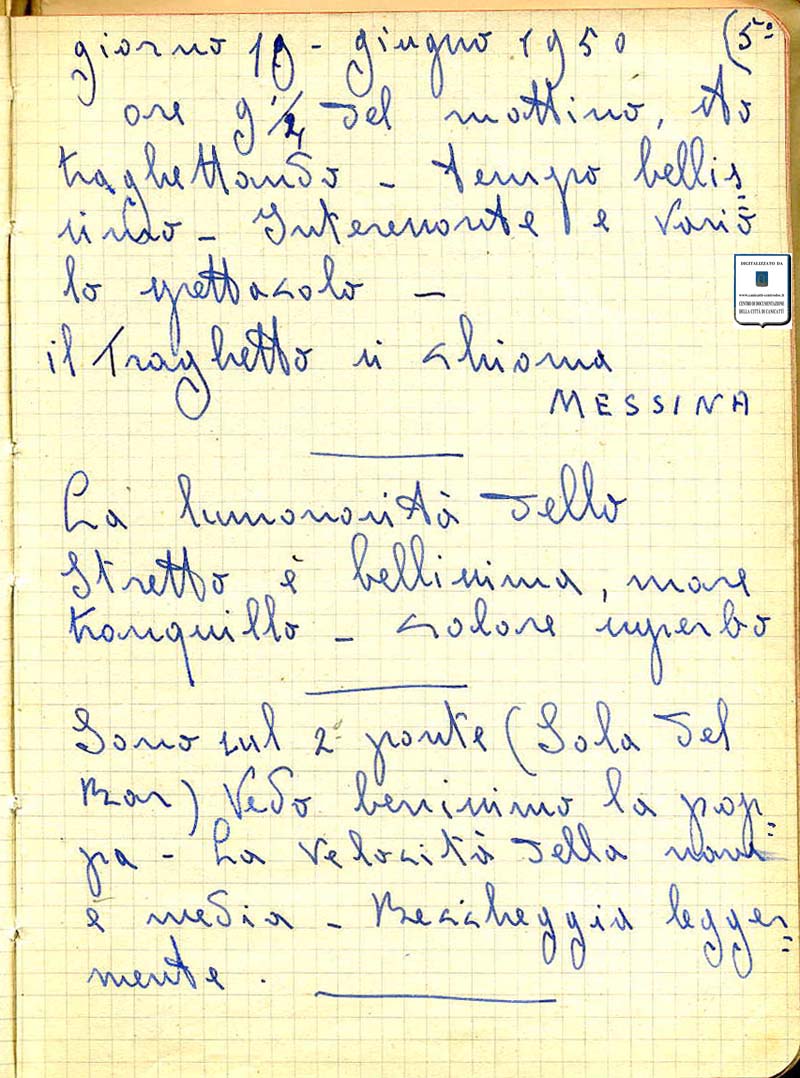 giorno 19 - giugno 1950 (5°
ore 9 1/2 del mattino, sto
traghettando - tempo bellis=
simo - Interessante e vario
lo spettacolo -
il traghetto si chiama
MESSINA
La luminosità dello
Stretto è bellissima, mare
tranquillo - colore superbo
Sono sul 2° ponte (Sala del
Bar) Vedo benissimo la pop=
pa - La velocità della nave
è media - Beccheggia legger=
mente.
DIGITALIZZATO DA
CENTRO DI DOCUMENTAZIONE
DELLA CITTÀ DI CANICATTÌ